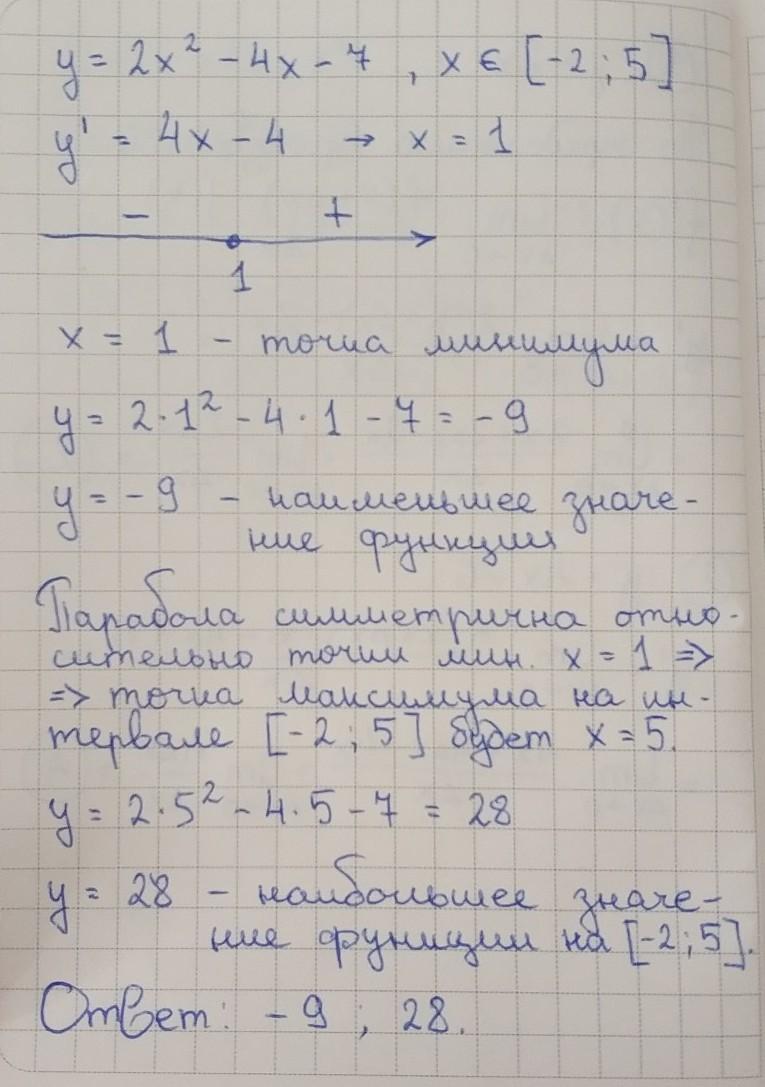 y = 2x² - 4x - 7 , x ∈ [-2 ; 5]
y' = 4x - 4 → x = 1
- +
1
x = 1 - точка минимума
y = 2·1² - 4·1 - 7 = -9
y = -9 - наименьшее значе-
ние функции
Парабола симметрична отно-
сительно точки мин. x = 1 =>
=> точка максимума на ин-
тервале [-2 ; 5] будет x = 5.
y = 2·5² - 4·5 - 7 = 28
y = 28 - наибольшее значе-
ние функции на [-2 ; 5].
Ответ: -9 ; 28.